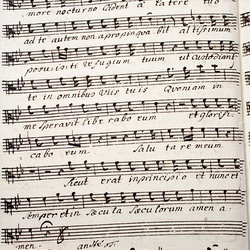 more nocturno Cadent a latere tuo
ad te autem non apropinqua bit altissimum
posuisti refugium tuum ut Custodiant
te in omnibus Viis tuis Quoniam in
me speravit libe rabo eum et glorifi
cabo eum Saluta re meum
Sicut erat in principio et nunc et
semper et in Sæcula Sæculorum amen a
men